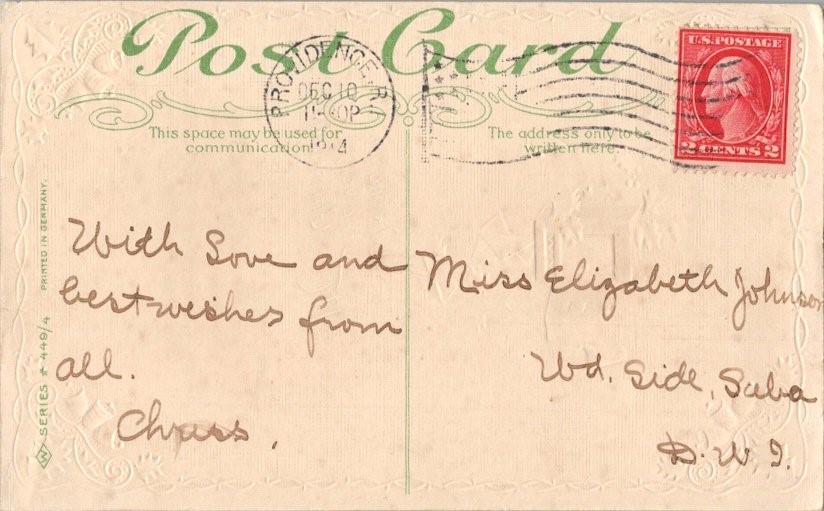 Post Card
PROVIDENCE, R.I.
DEC 10
1914
U.S. POSTAGE
2 CENTS 2
This space may be used for
communication.
The address only to be
written here.
PRINTED IN GERMANY.
SERIES * 449/4
W
With Love and
best wishes from
all.
Miss Elizabeth Johnson
Wd. Side, Saba
D. W. I.